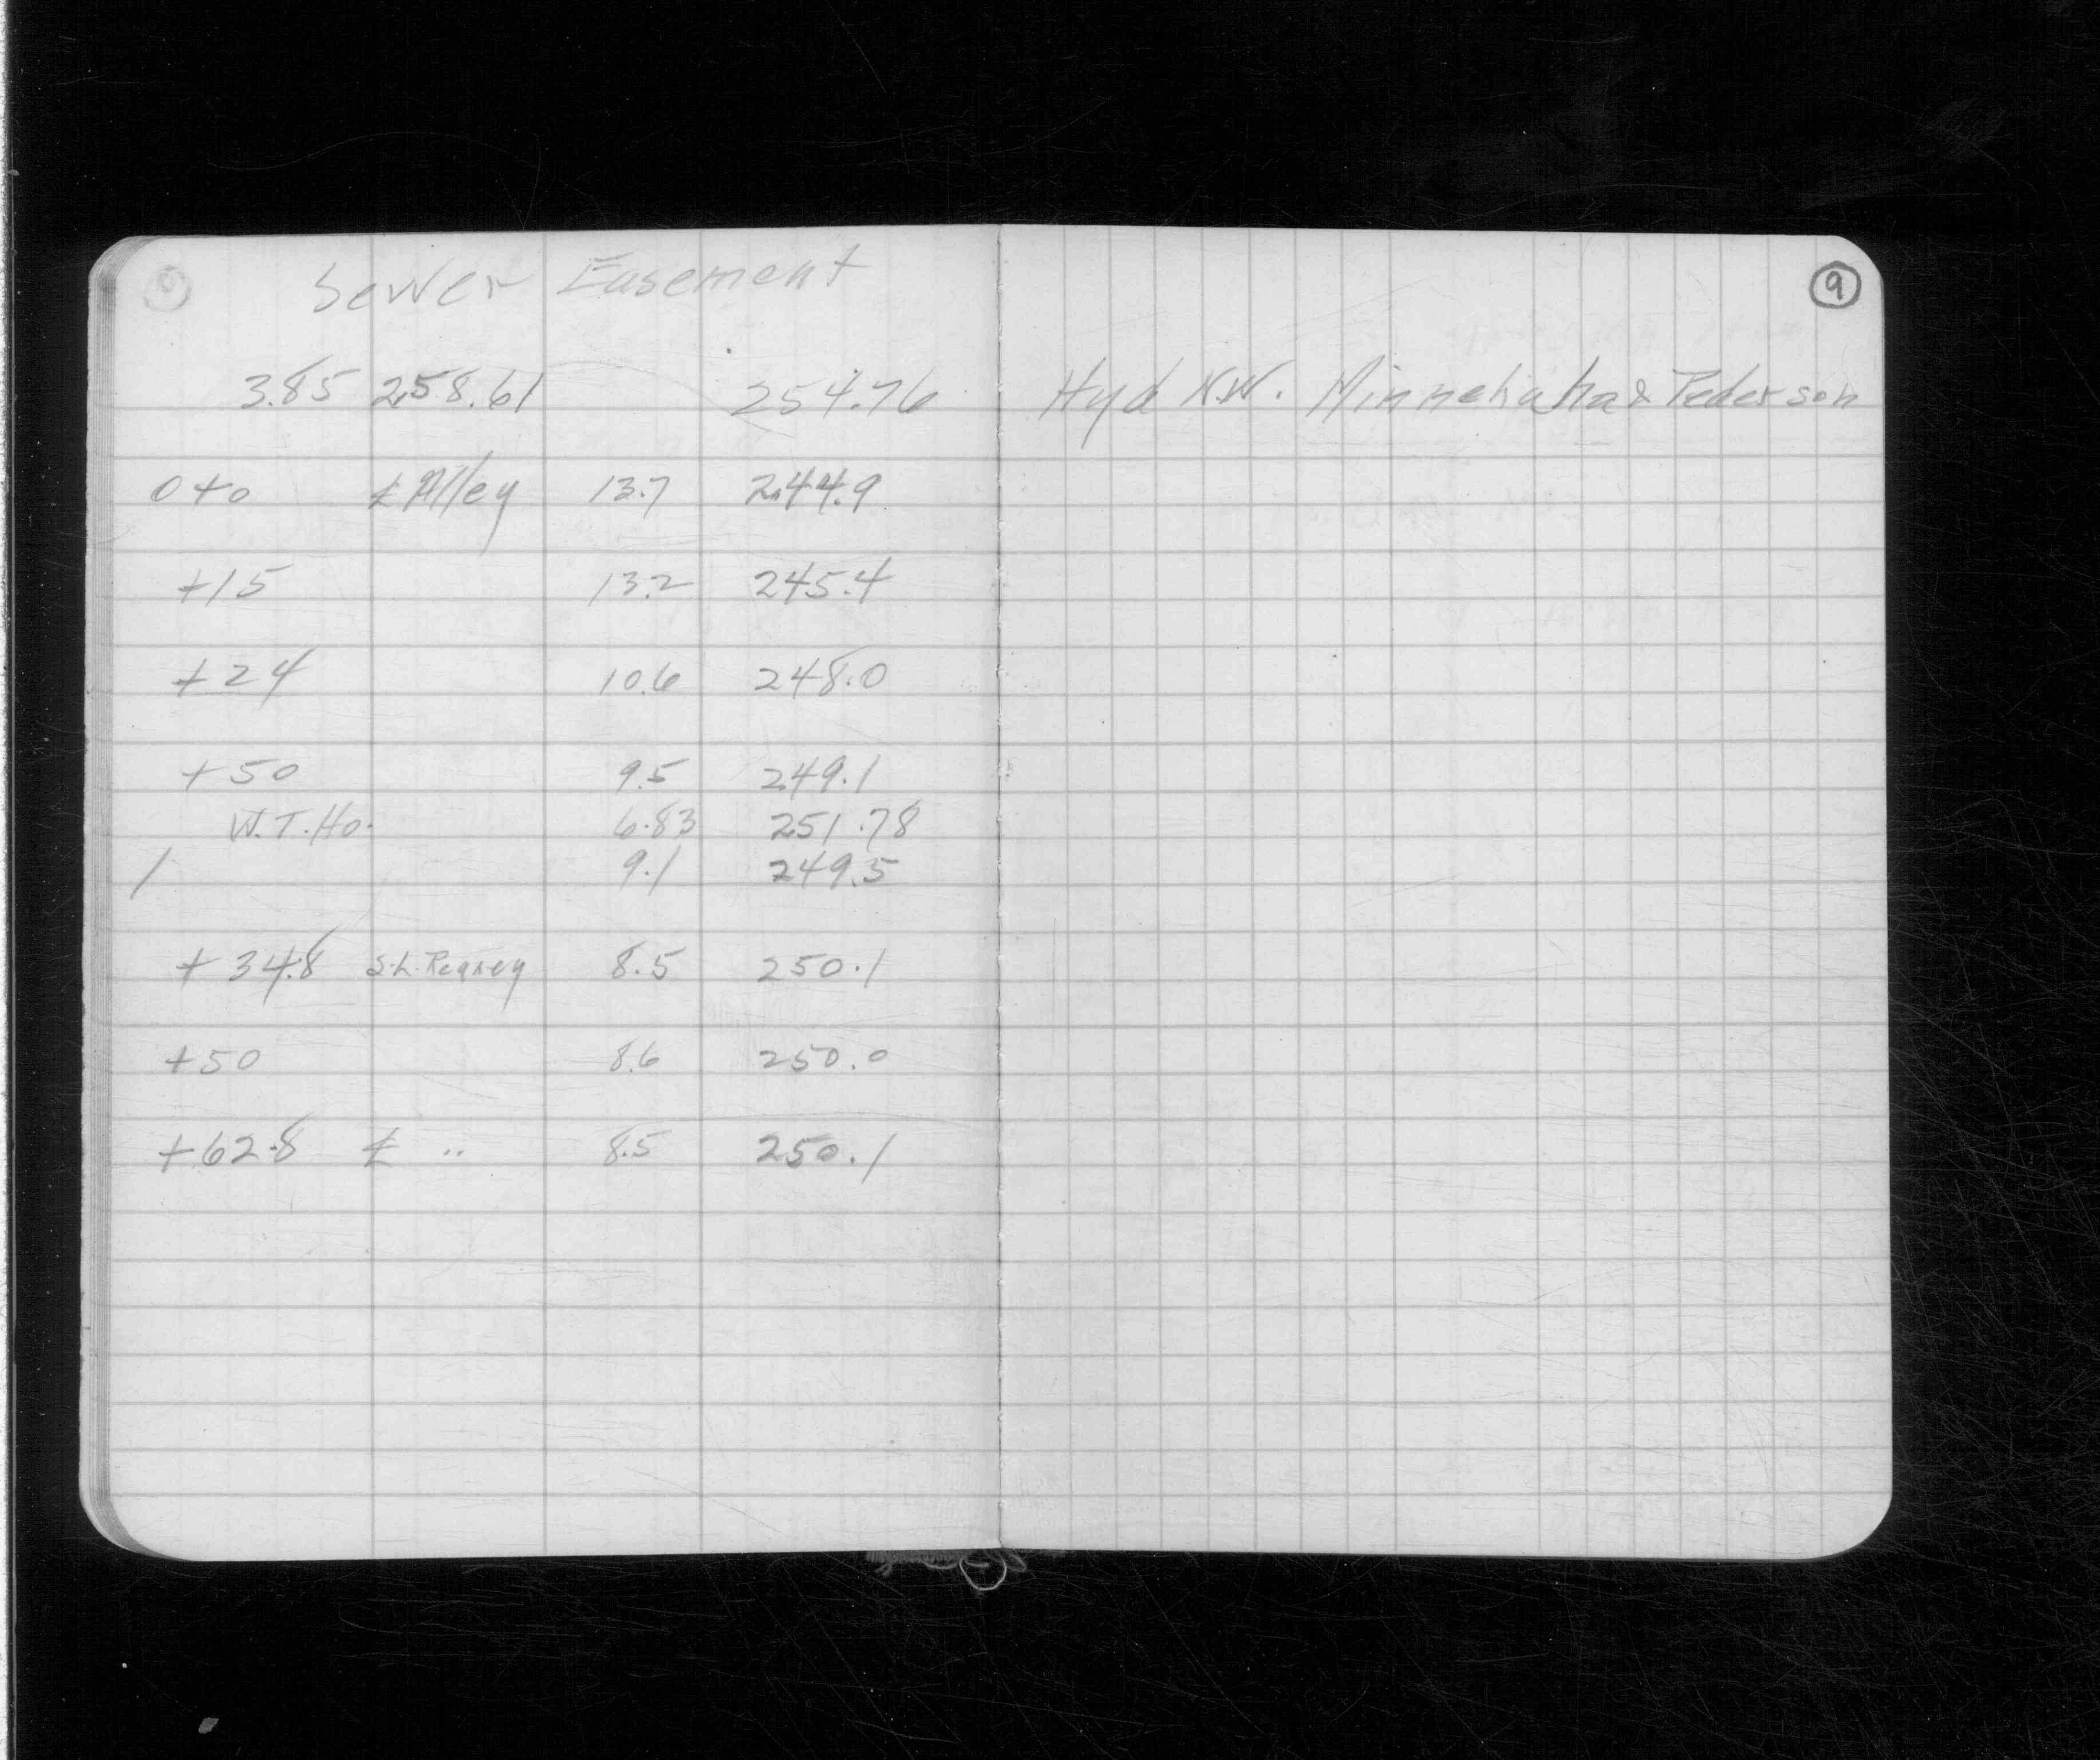 Sewer Easement
9
3.85 258.61 254.76 Hyd N.W. Minnehaha & Pederson
0+0 ℄ Alley 13.7 244.9
+15 13.2 245.4
+24 10.6 248.0
+50 9.5 249.1
W.T. Ho. 6.83 251.78
1 9.1 249.5
+34.8 S.L. 8.5 250.1
+50 8.6 250.0
+62.8 ℄ .. 8.5 250.1